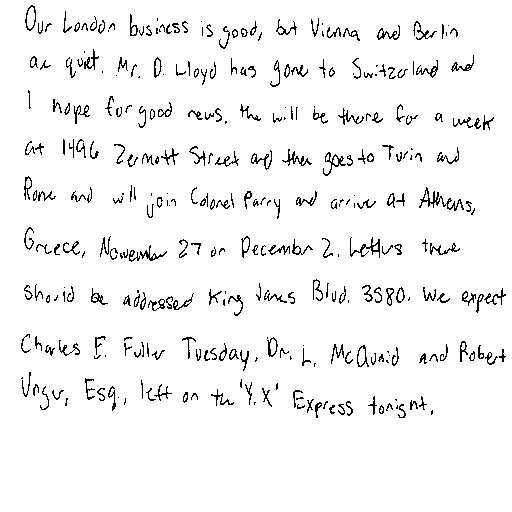 Our London business is good, but Vienna and Berlin
are quiet. Mr. D. Lloyd has gone to Switzerland and
I hope for good news. He will be there for a week
at 1496 Zermott Street and then goes to Turin and
Rome and will join Colonel Parry and arrive at Athens,
Greece, November 27 or December 2. Letters there
should be addressed King James Blvd. 3580. We expect
Charles E. Fuller Tuesday. Dr. L. McQuaid and Robert
Unger, Esq., left on the 'Y.X' Express tonight.